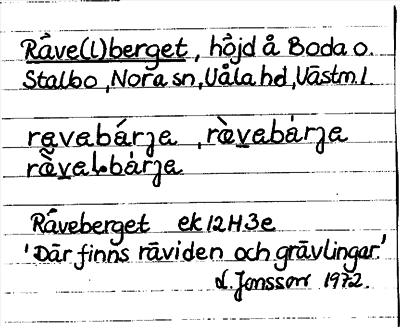 Råve(l)berget, höjd å Boda o.
Stalbo, Nora sn, Våla hd, Västm. l.
ravabárja, ràvabárja
ràvalbárja
Råveberget ek 12H3e
'Där finns räviden och grävlingar.'
L. Jonsson 1972.